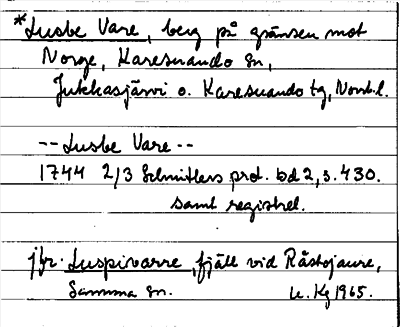 *Lusbe Vare, berg på gränsen mot
Norge, Karesuando sn,
Jukkasjärvi o. Karesuando tg, Norrb.l.
-- Lusbe Vare --
1744 2/3 Schnitlers prot. bd 2, s. 430.
samt registret.
jfr. Luspivarre, fjäll vid Råstojaure,
Samma sn. u. Kg 1965.